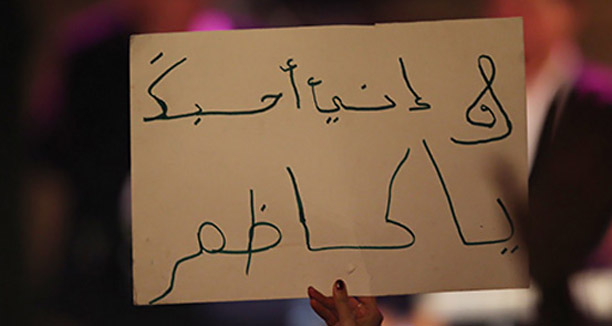 و إنيأ أحبكَ
يا كاظم